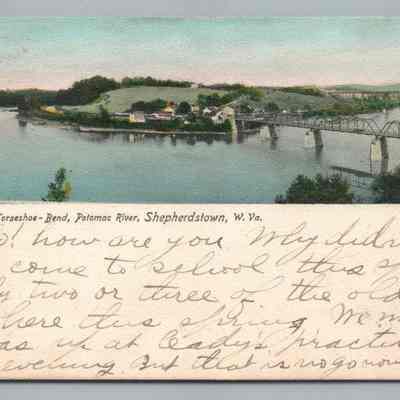 orseshoe-Bend, Potomac River, Shepherdstown, W. Va.
! how are you Why didn
come to school this s
two or three of the old
here this spring. We m
as us at Practi
evening. But that is no go now